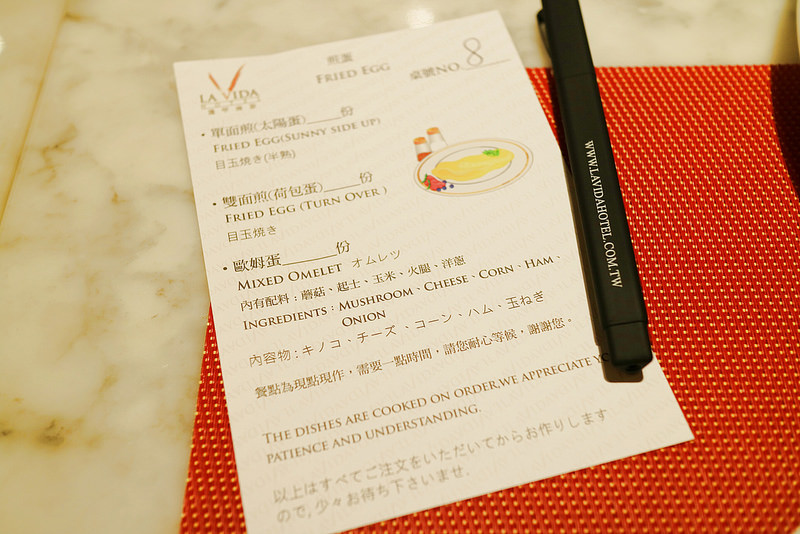 煎蛋
FRIED EGG
桌號NO. 8
LA VIDA
• 單面煎(太陽蛋)_____份
FRIED EGG(SUNNY SIDE UP)
目玉焼き(半熟)
• 雙面煎(荷包蛋)_____份
FRIED EGG (TURN OVER )
目玉焼き
• 歐姆蛋_______份
MIXED OMELET オムレツ
內有配料：蘑菇、起士、玉米、火腿、洋蔥
INGREDIENTS：MUSHROOM、CHEESE、CORN、HAM、
ONION
內容物：キノコ、チーズ、コーン、ハム、玉ねぎ
餐點為現點現作，需要一點時間，請您耐心等候，謝謝您。
THE DISHES ARE COOKED ON ORDER.WE APPRECIATE
PATIENCE AND UNDERSTANDING.
以上はすべてご注文をいただいてからお作りします
ので,少々お待ち下さいませ.
WWW.LAVIDAHOTEL.COM.TW